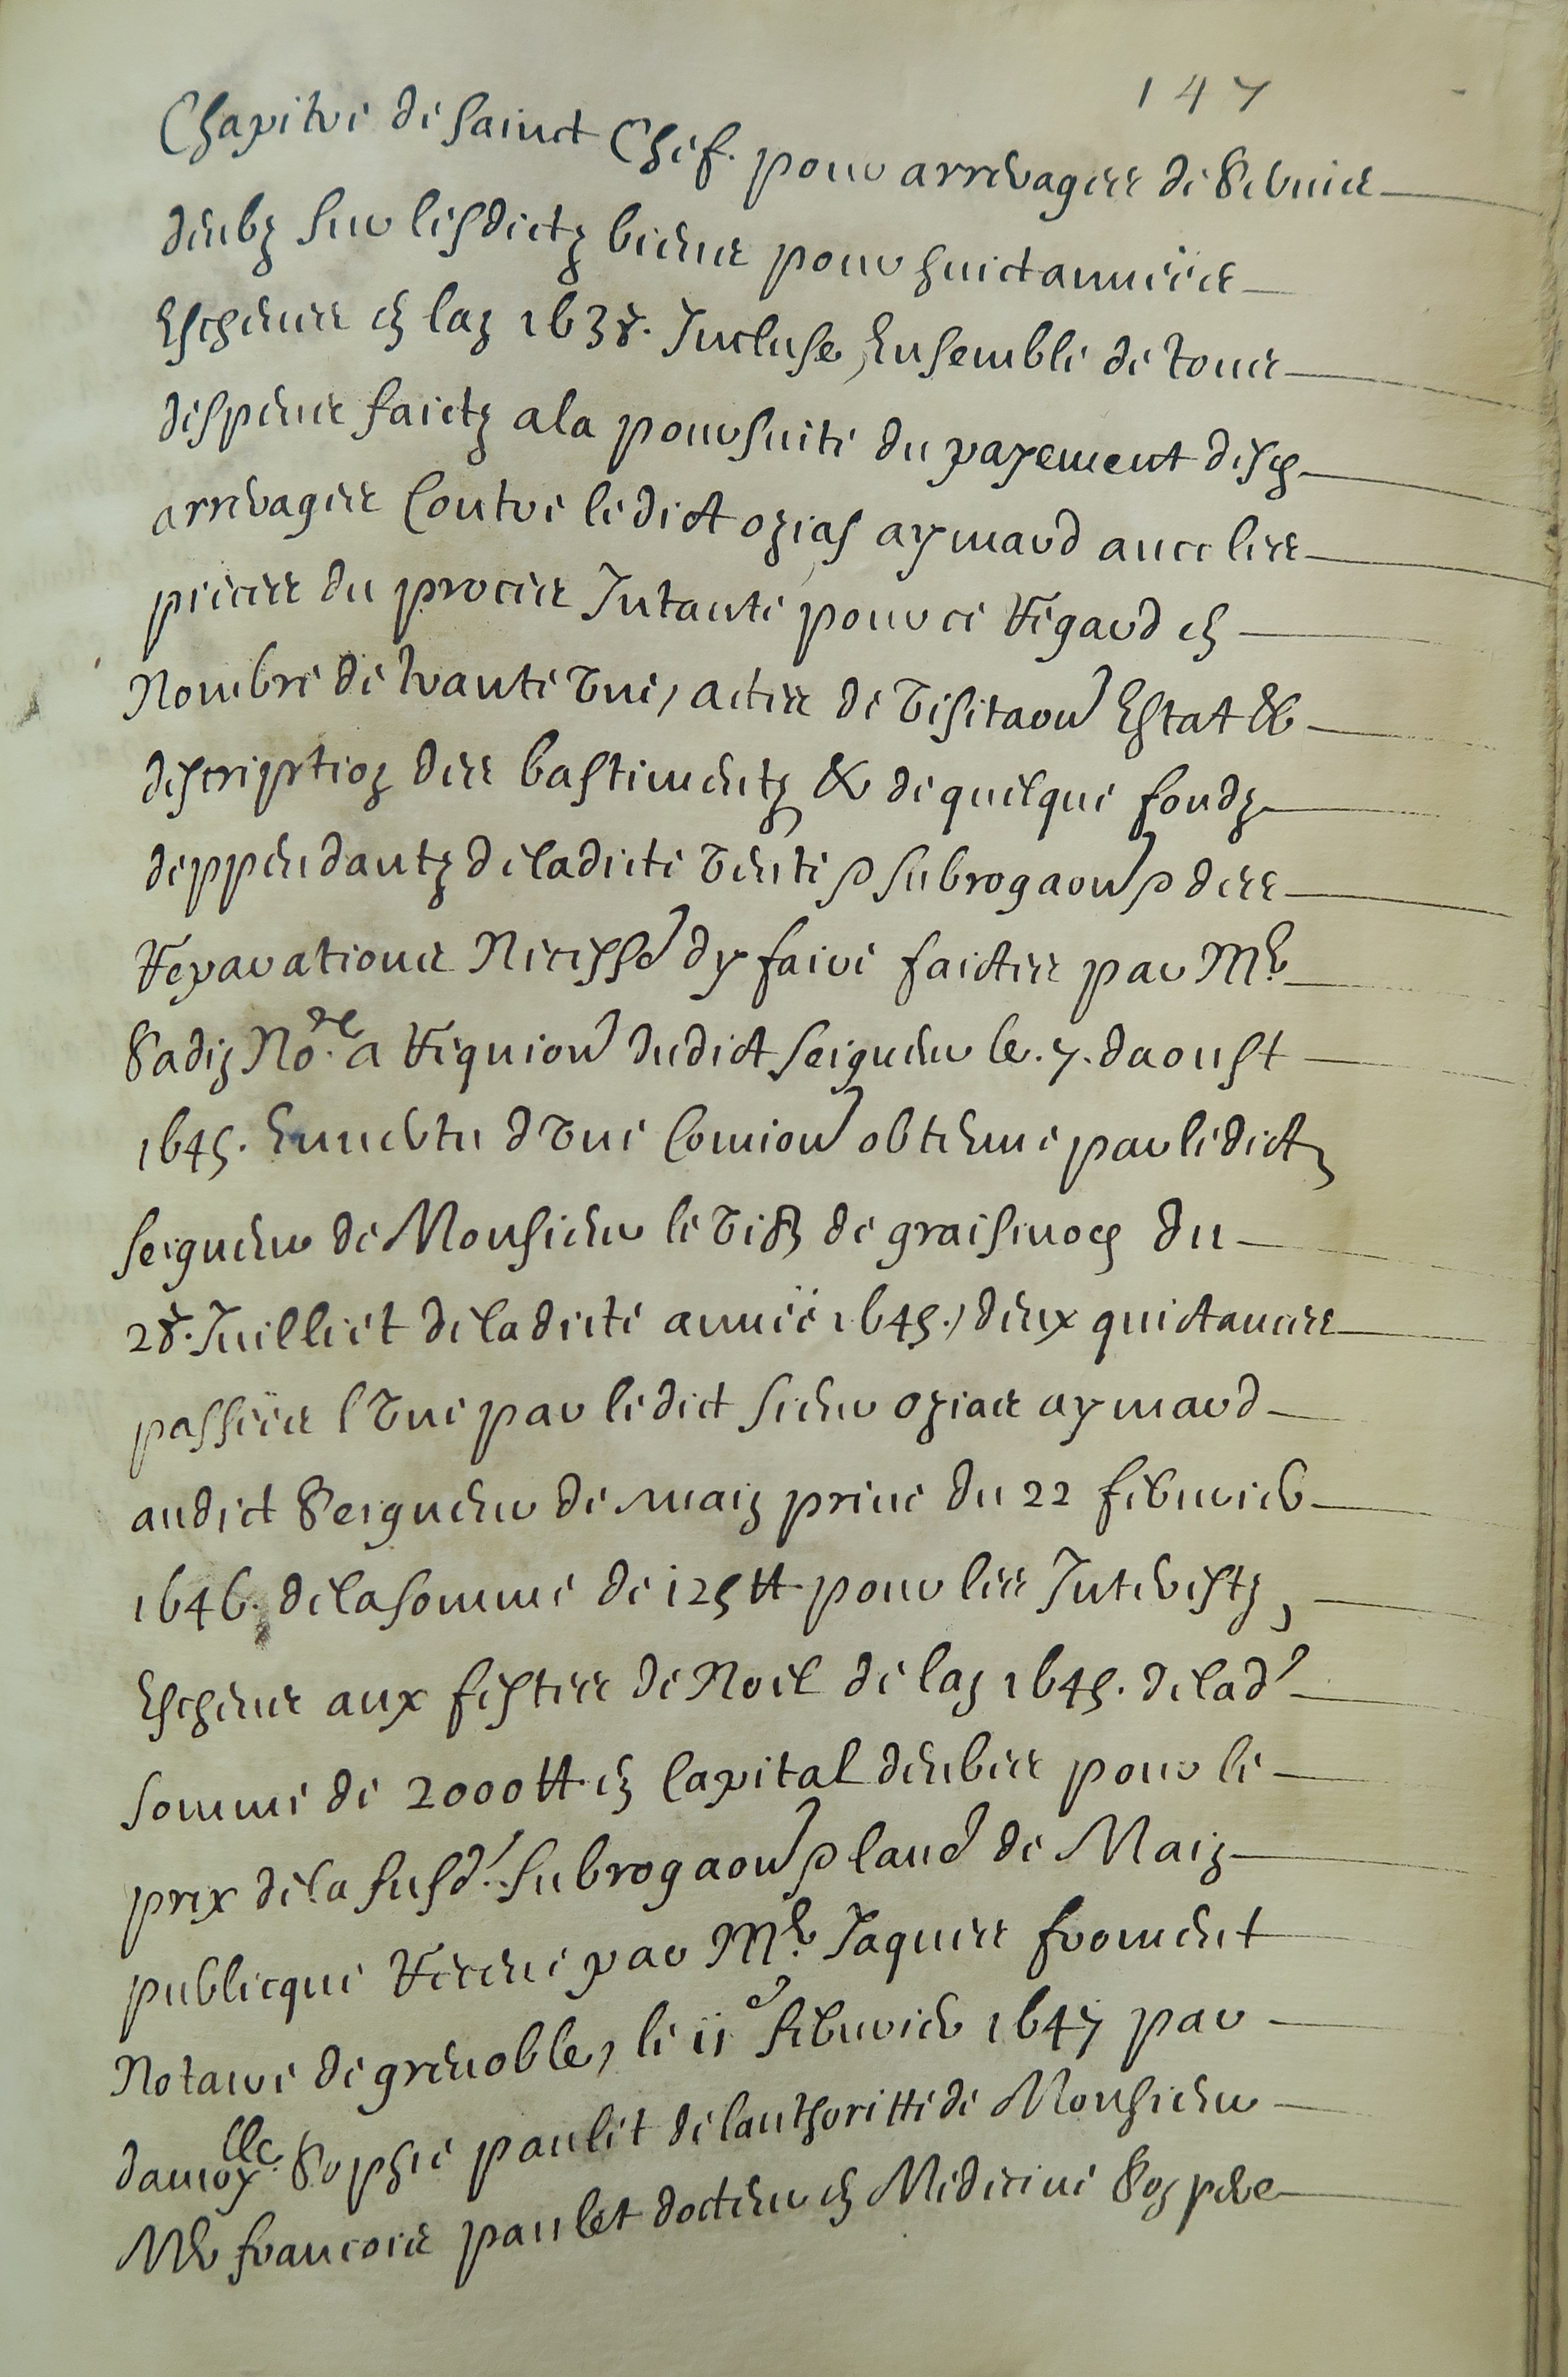 147
Chapitre de Sainct Chef. pour arrerages de Servis
deubz sur lesdictz biens pour huict années
Escheues en lan 1638. Incluse, Ensemble de tous
despens faictz a la poursuite du payement desd
arrerages Contre ledict ozias aymard avec les
pieces du proces Intanté pour ce Regard en
Nombre de trante une, actes de visitaon Estat &
descriprtion des bastimentz & de quelque fondz
deppendantz de ladicte vente & subrogaon & des
Reparations Necessres dy faire faictes par Mre
Sadin No.re a Requion dudict Seigneur le. 7. daoust
1645. En vertu d'une Comion obtenue par ledict
seigneur de Monsieur le Vib. de graisivod du
28. Juilliet de ladicte année 1645., deux quictances
passées l'une par ledict sieur ozias aymard
audict Seigneur de main prine du 22 febvrier
1646. de la somme de 125 tt. pour les Interestz,
Escheus aux festes de Noel de lan 1645. de lade
somme de 2000 tt. en Capital deubes pour le
prix de la susde. subrogaon & laure de Main
publicque Receue par Mre. Jaques froment
Notaire de grenoble, le 11e febvrier 1647 par
damoylle. Sophie paulet de lauthoritté de Monsieur
Mre francois paulet docteur en Medicine Son pere